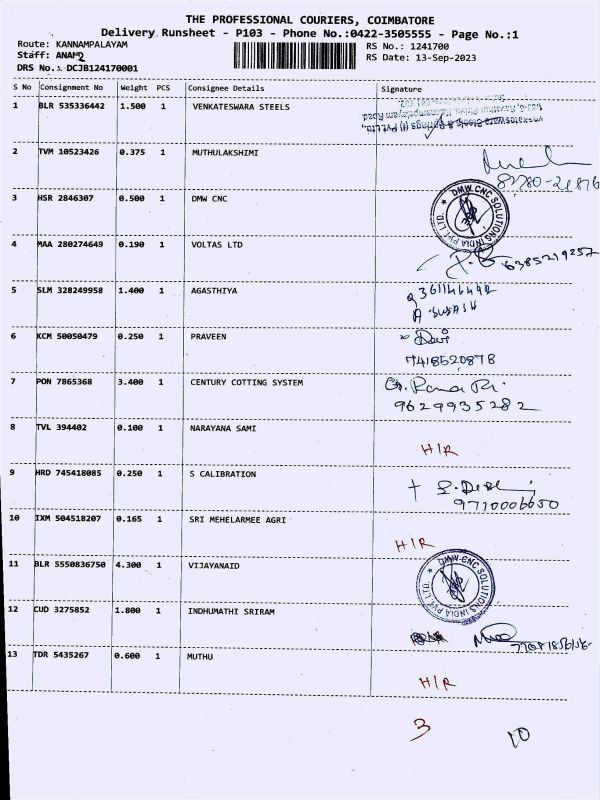 THE PROFESSIONAL COURIERS, COIMBATORE
Delivery Runsheet - P103 - Phone No.:0422-3505555 - Page No.:1
Route: KANNAMPALAYAM
RS No.: 1241700
Staff: ANAND
RS Date: 13-Sep-2023
DRS No.: DCJB124170001
S No Consignment No Weight PCS Consignee Details Signature
1 BLR 535336442 1.500 1 VENKATESWARA STEELS
Venkateswara Steels & Springs (I) Pvt Ltd.,
2 TVM 10523426 0.375 1 MUTHULAKSHIMI
3 HSR 2846307 0.500 1 DMW CNC
DMW CNC SOLUTIONS INDIA PVT. LTD.
4 MAA 280274649 0.190 1 VOLTAS LTD
6385219257
5 SLM 328249958 1.400 1 AGASTHIYA
A SUBASH
6 KCM 50050479 0.250 1 PRAVEEN
Devi
7418520878
7 PON 7865368 3.400 1 CENTURY COTTING SYSTEM
9629935282
8 TVL 394402 0.100 1 NARAYANA SAMI
H/R
9 HRD 745418085 0.250 1 S CALIBRATION
9710006650
10 IXM 504518207 0.165 1 SRI MEHELARMEE AGRI
H/R
11 BLR 5550836750 4.300 1 VIJAYANAID
DMW CNC SOLUTIONS INDIA PVT. LTD.
12 CUD 3275852 1.800 1 INDHUMATHI SRIRAM
13 TDR 5435267 0.600 1 MUTHU
H/R
3 10